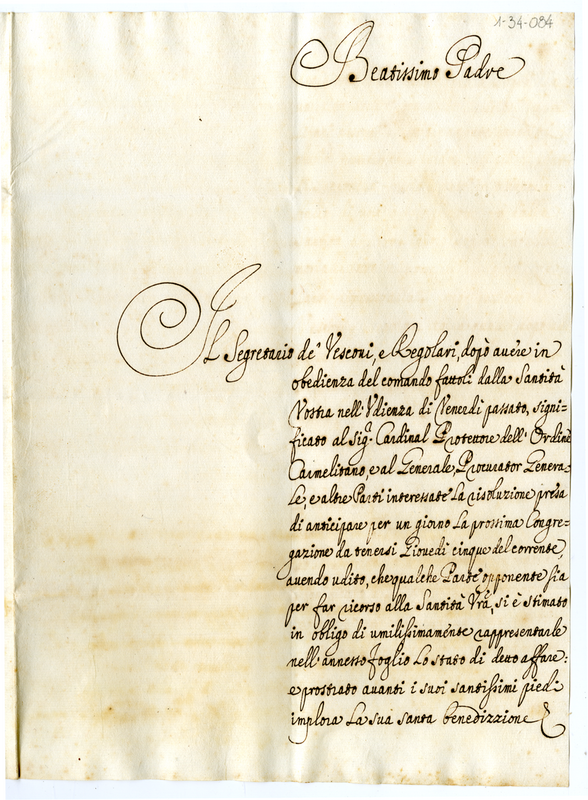 1-34-084
Beatissimo Padre
Il Segretario de' Vescovi, e Regolari, dopò avere in
obedienza del comando fattoli dalla Santità
Vostra nell' Vdienza di Venerdi passato, signi=
ficato al Sig.r Cardinal Protettore dell' Ordine
Carmelitano, e al Generale, Procurator Genera=
le, e altre Parti interessate la risoluzione presa
di anticipare per un giorno la prossima Congre=
gazione da tenersi Giovedi cinque del corrente,
avendo udito, che qualche Parte opponente sia
per far ricorso alla Santità Vra, si è stimato
in obligo di umilissimamente rappresentarle
nell' annesso foglio lo stato di detto affare:
e prostrato avanti i suoi santissimi piedi
implora la sua santa benedizzione